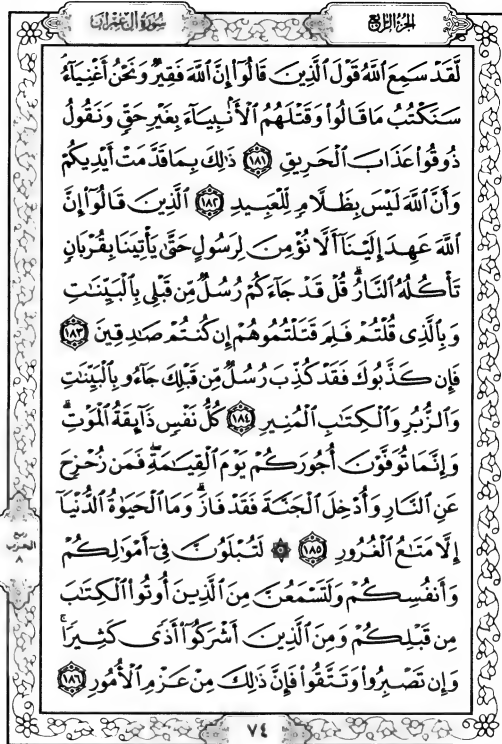 سُورَةُ آلِ عِمْرَانَ
الجُزْءُ الرَّابِعُ
لَّقَدْ سَمِعَ اللَّهُ قَوْلَ الَّذِينَ قَالُوا إِنَّ اللَّهَ فَقِيرٌ وَنَحْنُ أَغْنِيَاءُ
سَنَكْتُبُ مَا قَالُوا وَقَتْلَهُمُ الْأَنبِيَاءَ بِغَيْرِ حَقٍّ وَنَقُولُ
ذُوقُوا عَذَابَ الْحَرِيقِ ١٨١ ذَٰلِكَ بِمَا قَدَّمَتْ أَيْدِيكُمْ
وَأَنَّ اللَّهَ لَيْسَ بِظَلَّامٍ لِّلْعَبِيدِ ١٨٢ الَّذِينَ قَالُوا إِنَّ
اللَّهَ عَهِدَ إِلَيْنَا أَلَّا نُؤْمِنَ لِرَسُولٍ حَتَّىٰ يَأْتِيَنَا بِقُرْبَانٍ
تَأْكُلُهُ النَّارُ ۗ قُلْ قَدْ جَاءَكُمْ رُسُلٌ مِّن قَبْلِي بِالْبَيِّنَاتِ
وَبِالَّذِي قُلْتُمْ فَلِمَ قَتَلْتُمُوهُمْ إِن كُنتُمْ صَادِقِينَ ١٨٣
فَإِن كَذَّبُوكَ فَقَدْ كُذِّبَ رُسُلٌ مِّن قَبْلِكَ جَاءُو بِالْبَيِّنَاتِ
وَالزُّبُرِ وَالْكِتَابِ الْمُنِيرِ ١٨٤ كُلُّ نَفْسٍ ذَائِقَةُ الْمَوْتِ ۗ
وَإِنَّمَا تُوَفَّوْنَ أُجُورَكُمْ يَوْمَ الْقِيَامَةِ ۖ فَمَن زُحْزِحَ
عَنِ النَّارِ وَأُدْخِلَ الْجَنَّةَ فَقَدْ فَازَ ۗ وَمَا الْحَيَاةُ الدُّنْيَا
إِلَّا مَتَاعُ الْغُرُورِ ١٨٥ ۞ لَتُبْلَوُنَّ فِي أَمْوَالِكُمْ
وَأَنفُسِكُمْ وَلَتَسْمَعُنَّ مِنَ الَّذِينَ أُوتُوا الْكِتَابَ
مِن قَبْلِكُمْ وَمِنَ الَّذِينَ أَشْرَكُوا أَذًى كَثِيرًا ۚ
وَإِن تَصْبِرُوا وَتَتَّقُوا فَإِنَّ ذَٰلِكَ مِنْ عَزْمِ الْأُمُورِ ١٨٦
ربع
الحزب
٨
٧٤